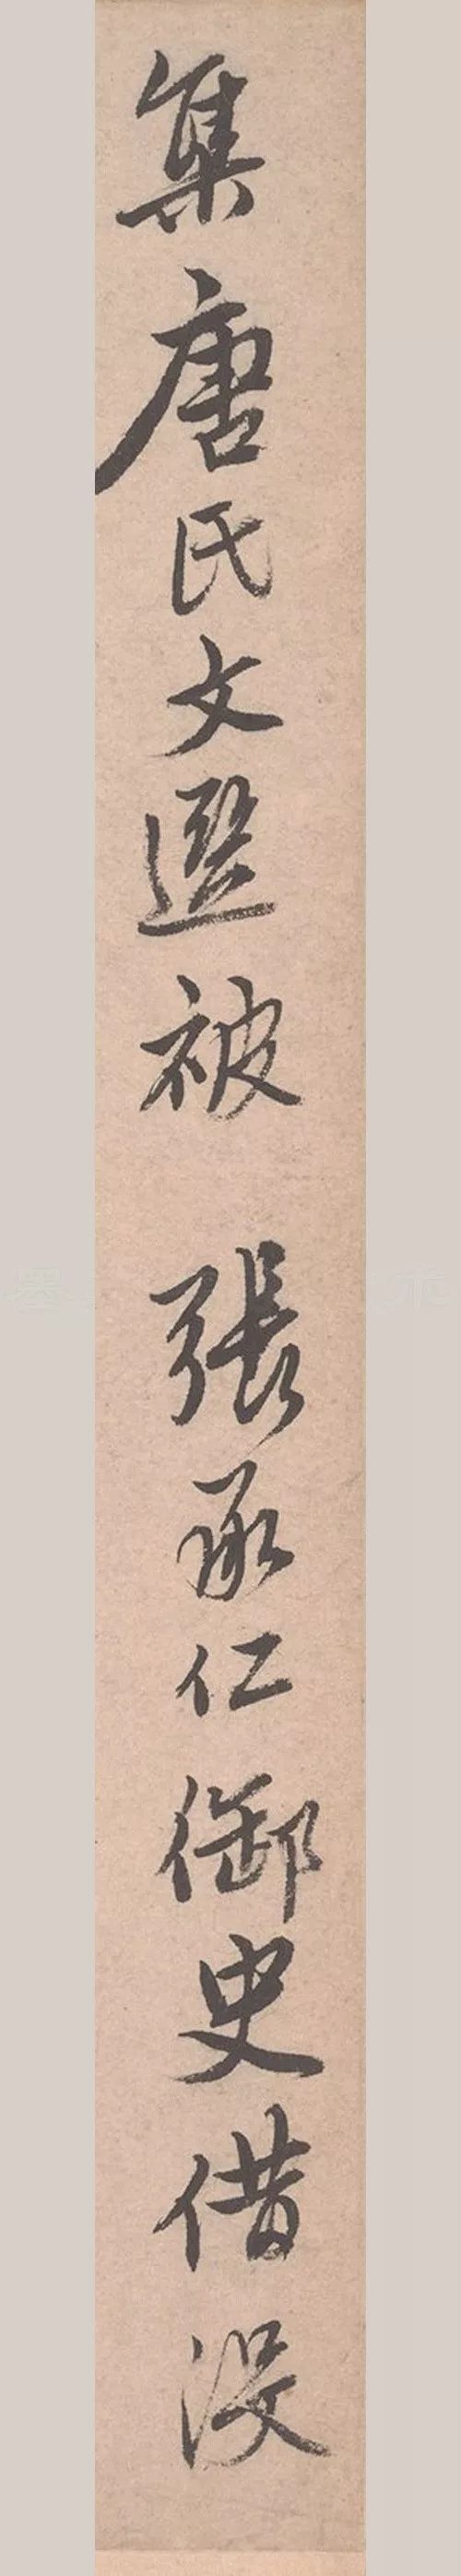 集唐氏文選被 張承仁御史借沒